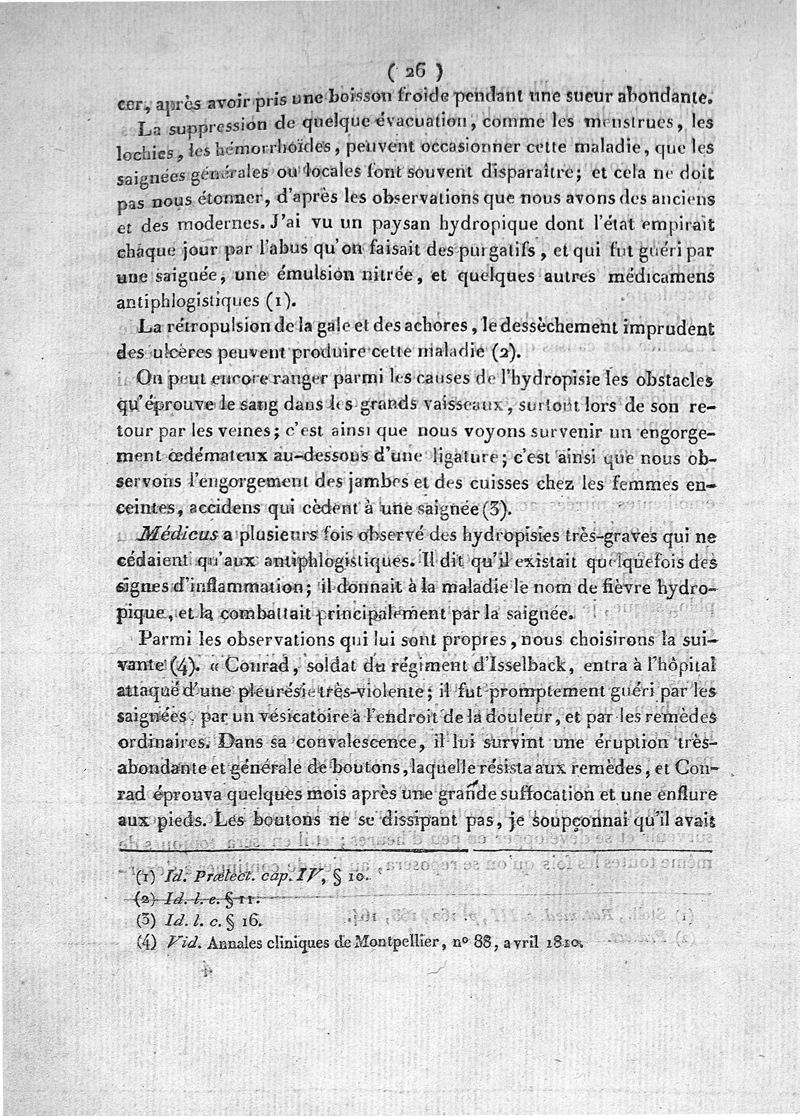 ( 26 )
cer, après avoir pris une boisson froide pendant une sueur abondante.
La suppression de quelque évacuation, comme les menstrues, les
lochies, les hémorrhoïdes, peuvent occasionner cette maladie, que les
saignées générales ou locales font souvent disparaître; et cela ne doit
pas nous étonner, d'après les observations que nous avons des anciens
et des modernes. J'ai vu un paysan hydropique dont l'état empirait
chaque jour par l'abus qu'on faisait des purgatifs, et qui fut guéri par
une saignée, une émulsion nitrée, et quelques autres médicamens
antiphlogistiques (1).
La rétropulsion de la gale et des achores, le dessèchement imprudent
des ulcères peuvent produire cette maladie (2).
On peut encore ranger parmi les causes de l'hydropisie les obstacles
qu'éprouve le sang dans les grands vaisseaux, surtout lors de son re-
tour par les veines; c'est ainsi que nous voyons survenir un engorge-
ment œdémateux au-dessous d'une ligature; c'est ainsi que nous ob-
servons l'engorgement des jambes et des cuisses chez les femmes en-
ceintes, accidens qui cèdent à une saignée (3).
Médicus a plusieurs fois observé des hydropisies très-graves qui ne
cédaient qu'aux antiphlogistiques. Il dit qu'il existait quelquefois des
signes d'inflammation; il donnait à la maladie le nom de fièvre hydro-
pique, et la combattait principalement par la saignée.
Parmi les observations qui lui sont propres, nous choisirons la sui-
vante (4). « Conrad, soldat du régiment d'Isselback, entra à l'hôpital
attaqué d'une pleurésie très-violente; il fut promptement guéri par les
saignées, par un vésicatoire à l'endroit de la douleur, et par les remèdes
ordinaires. Dans sa convalescence, il lui survint une éruption très-
abondante et générale de boutons, laquelle résista aux remèdes, et Con-
rad éprouva quelques mois après une grande suffocation et une enflure
aux pieds. Les boutons ne se dissipant pas, je soupçonnai qu'il avait
(1) Id. Prælect. cap. IV, § 10.
(2) Id. l. c. § 11.
(3) Id. l. c. § 16.
(4) Vid. Annales cliniques de Montpellier, nº 88, avril 1810.